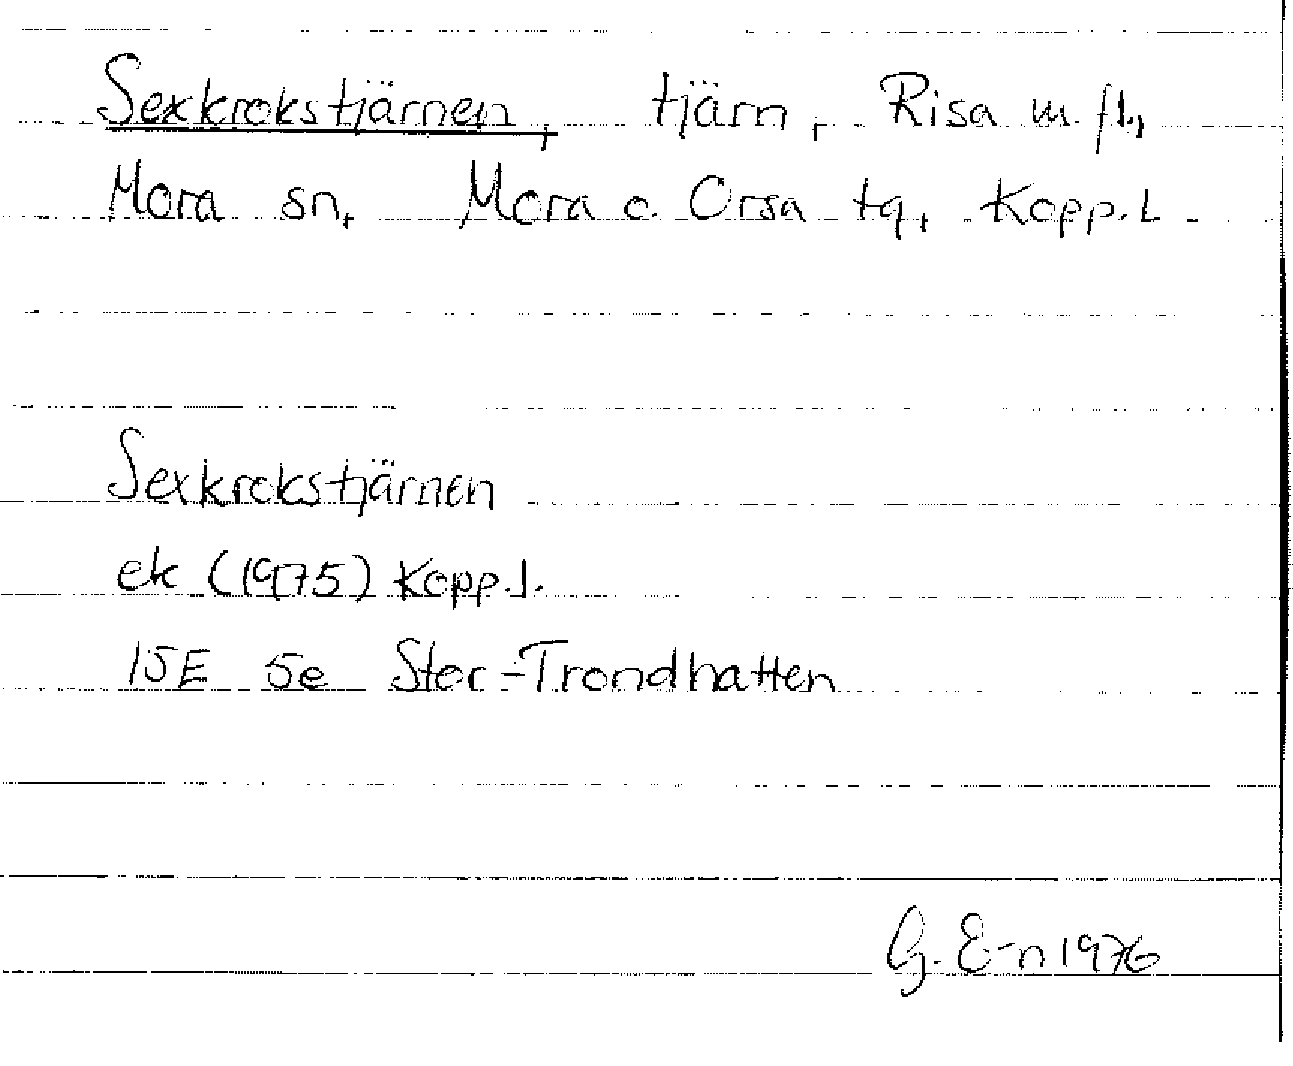 Sexkrokstjärnen, tjärn, Risa m.fl.,
Mora sn, Mora o. Orsa tg, Kopp.l.
Sexkrokstjärnen
ek (1975) Kopp.l.
15E 5e Stor-Trondhatten
G. E-n 1976